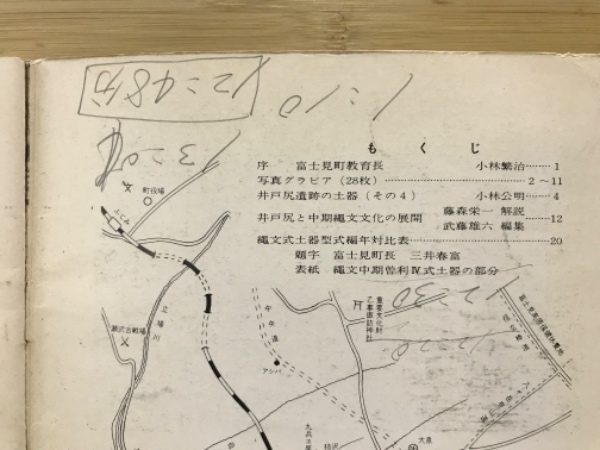 12=48分
1=10
13=0
もくじ
序　富士見町教育長　小林繁治……1
写真グラビア（28枚）……………2～11
井戸尻遺跡の土器（その4）　小林公明……4
井戸尻と中期縄文文化の展開　藤森栄一 解説　武藤雄六 編集……12
縄文式土器型式編年対比表……………20
題字　富士見町長　三井春富
表紙　縄文中期曽利Ⅳ式土器の部分
12=30
町役場
ふじみ
立場川
瀬沢古戦場
中央道
アシバ
重要文化財
乙事諏訪神社
大泉